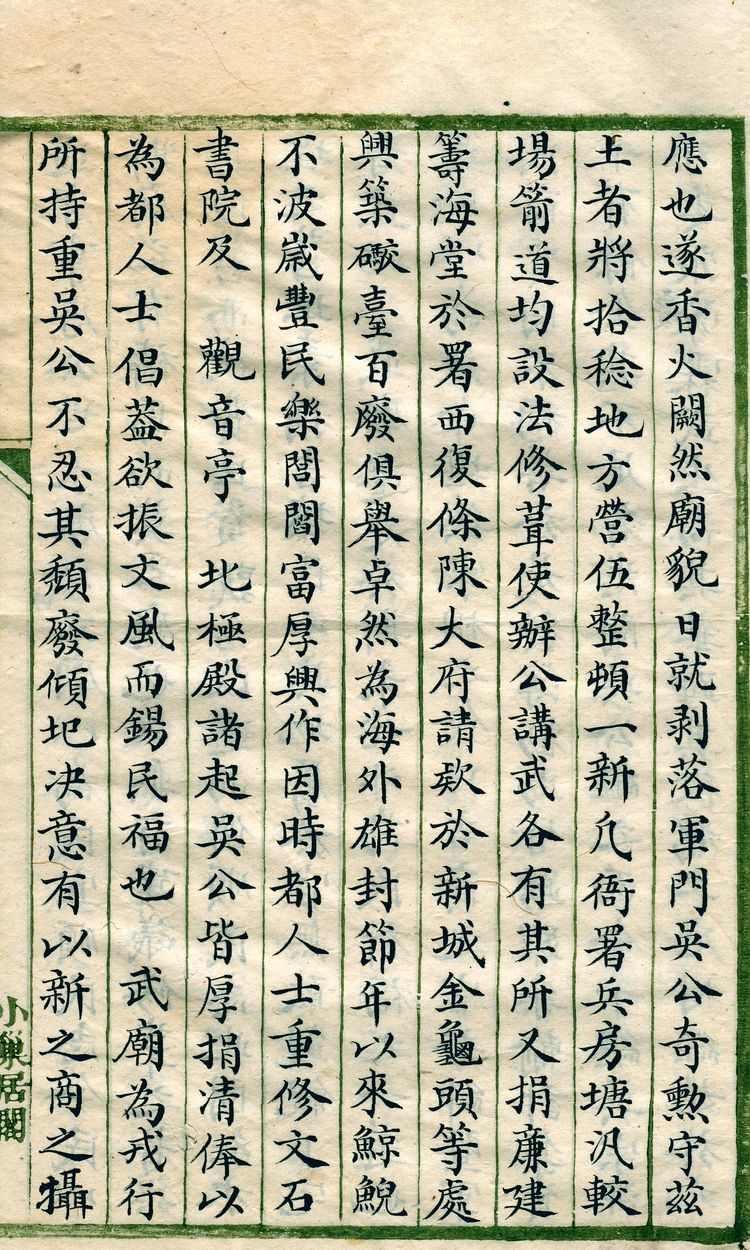 應也遂香火闕然廟貌日就剥落軍門吳公奇勲守茲
土者將拾稔地方營伍整頓一新凢衙署兵房塘汛較
場箭道均設法修葺使辦公講武各有其所又捐亷建
籌海堂於署西復條陳大府請欵於新城金龜頭等處
興築礮臺百廢俱舉卓然為海外雄封節年以來鯨鯢
不波歲豐民樂閭閻富厚興作因時都人士重修文石
書院及 觀音亭 北極殿諸起吳公皆厚捐清俸以
為都人士倡葢欲振文風而錫民福也 武廟為戎行
所持重吳公不忍其頽廢傾圯决意有以新之商之攝
小巢居閣